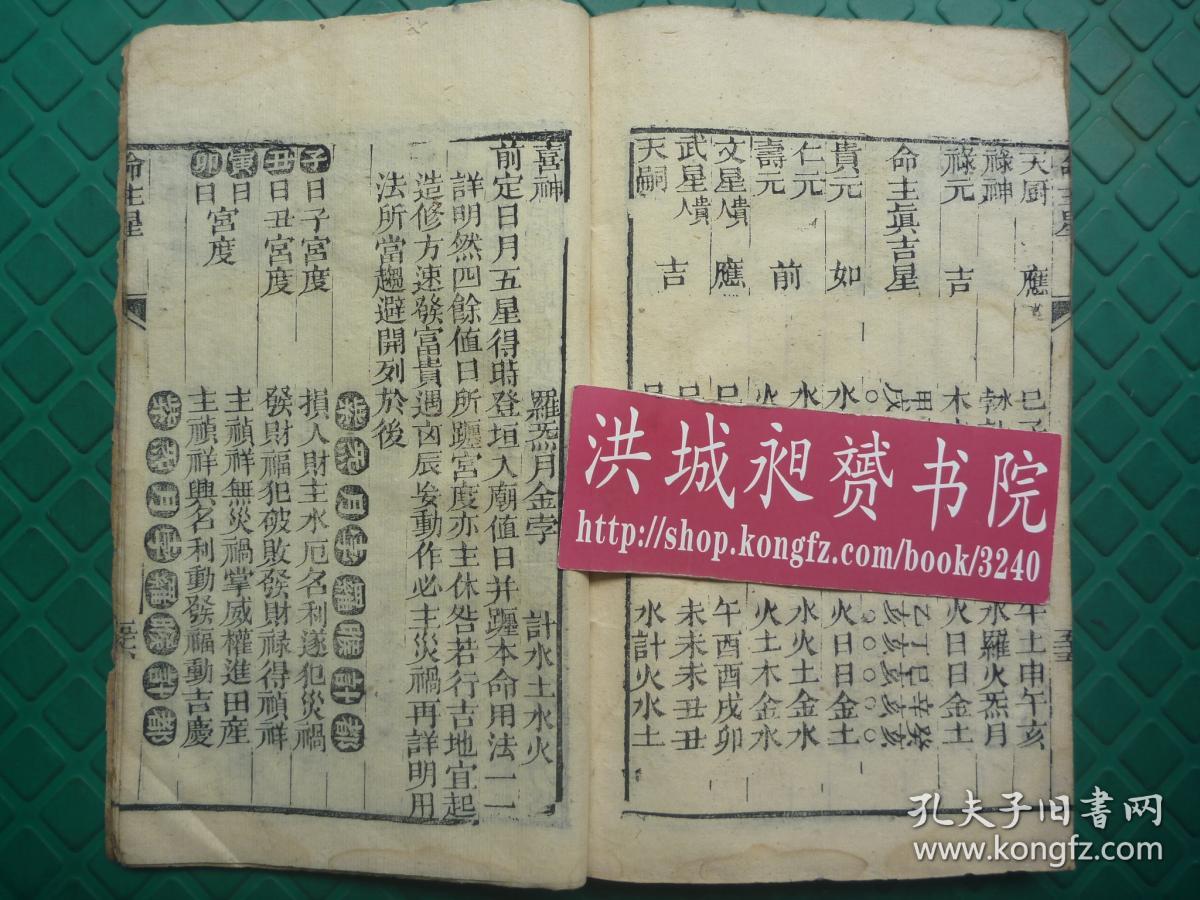 命主星
天厨 應 巳 午土申午亥
祿神 水羅火炁月
祿元 吉 木 火日日金土
命主眞吉星 甲戌 乙丁巳辛癸
〇 亥亥亥亥亥
〇〇〇〇〇
貴元 如 水 火日日金土
仁元 水 水火土金水
壽元 前 火 火土木金水
文星貴人 應 巳 午酉酉戌卯
武星貴人 巳 未未未丑丑
天嗣 吉 水計火水土
五十五
喜神 羅炁月金孛 計水土水火
前定日月五星得時登垣入廟值日并躔本命用法一一
詳明然四餘值日所躔宮度亦主休咎若行吉地宜起
造修方速發富貴遇凶辰妄動作必主災禍再詳明用
法所當趨避開列於後
紫炁月孛羅睺計都
子日子宮度 損人財主水厄名利遂犯災禍
丑日丑宮度 發財福犯破敗發財禄得禎祥
寅日 主禎祥無災禍掌威權進田産
卯日宮度 主禎祥興名利動發福動吉慶
紫炁月孛羅睺計都
命主星
五十六
洪城昶赟书院
http://shop.kongfz.com/book/3240
孔夫子旧书网
www.kongfz.com